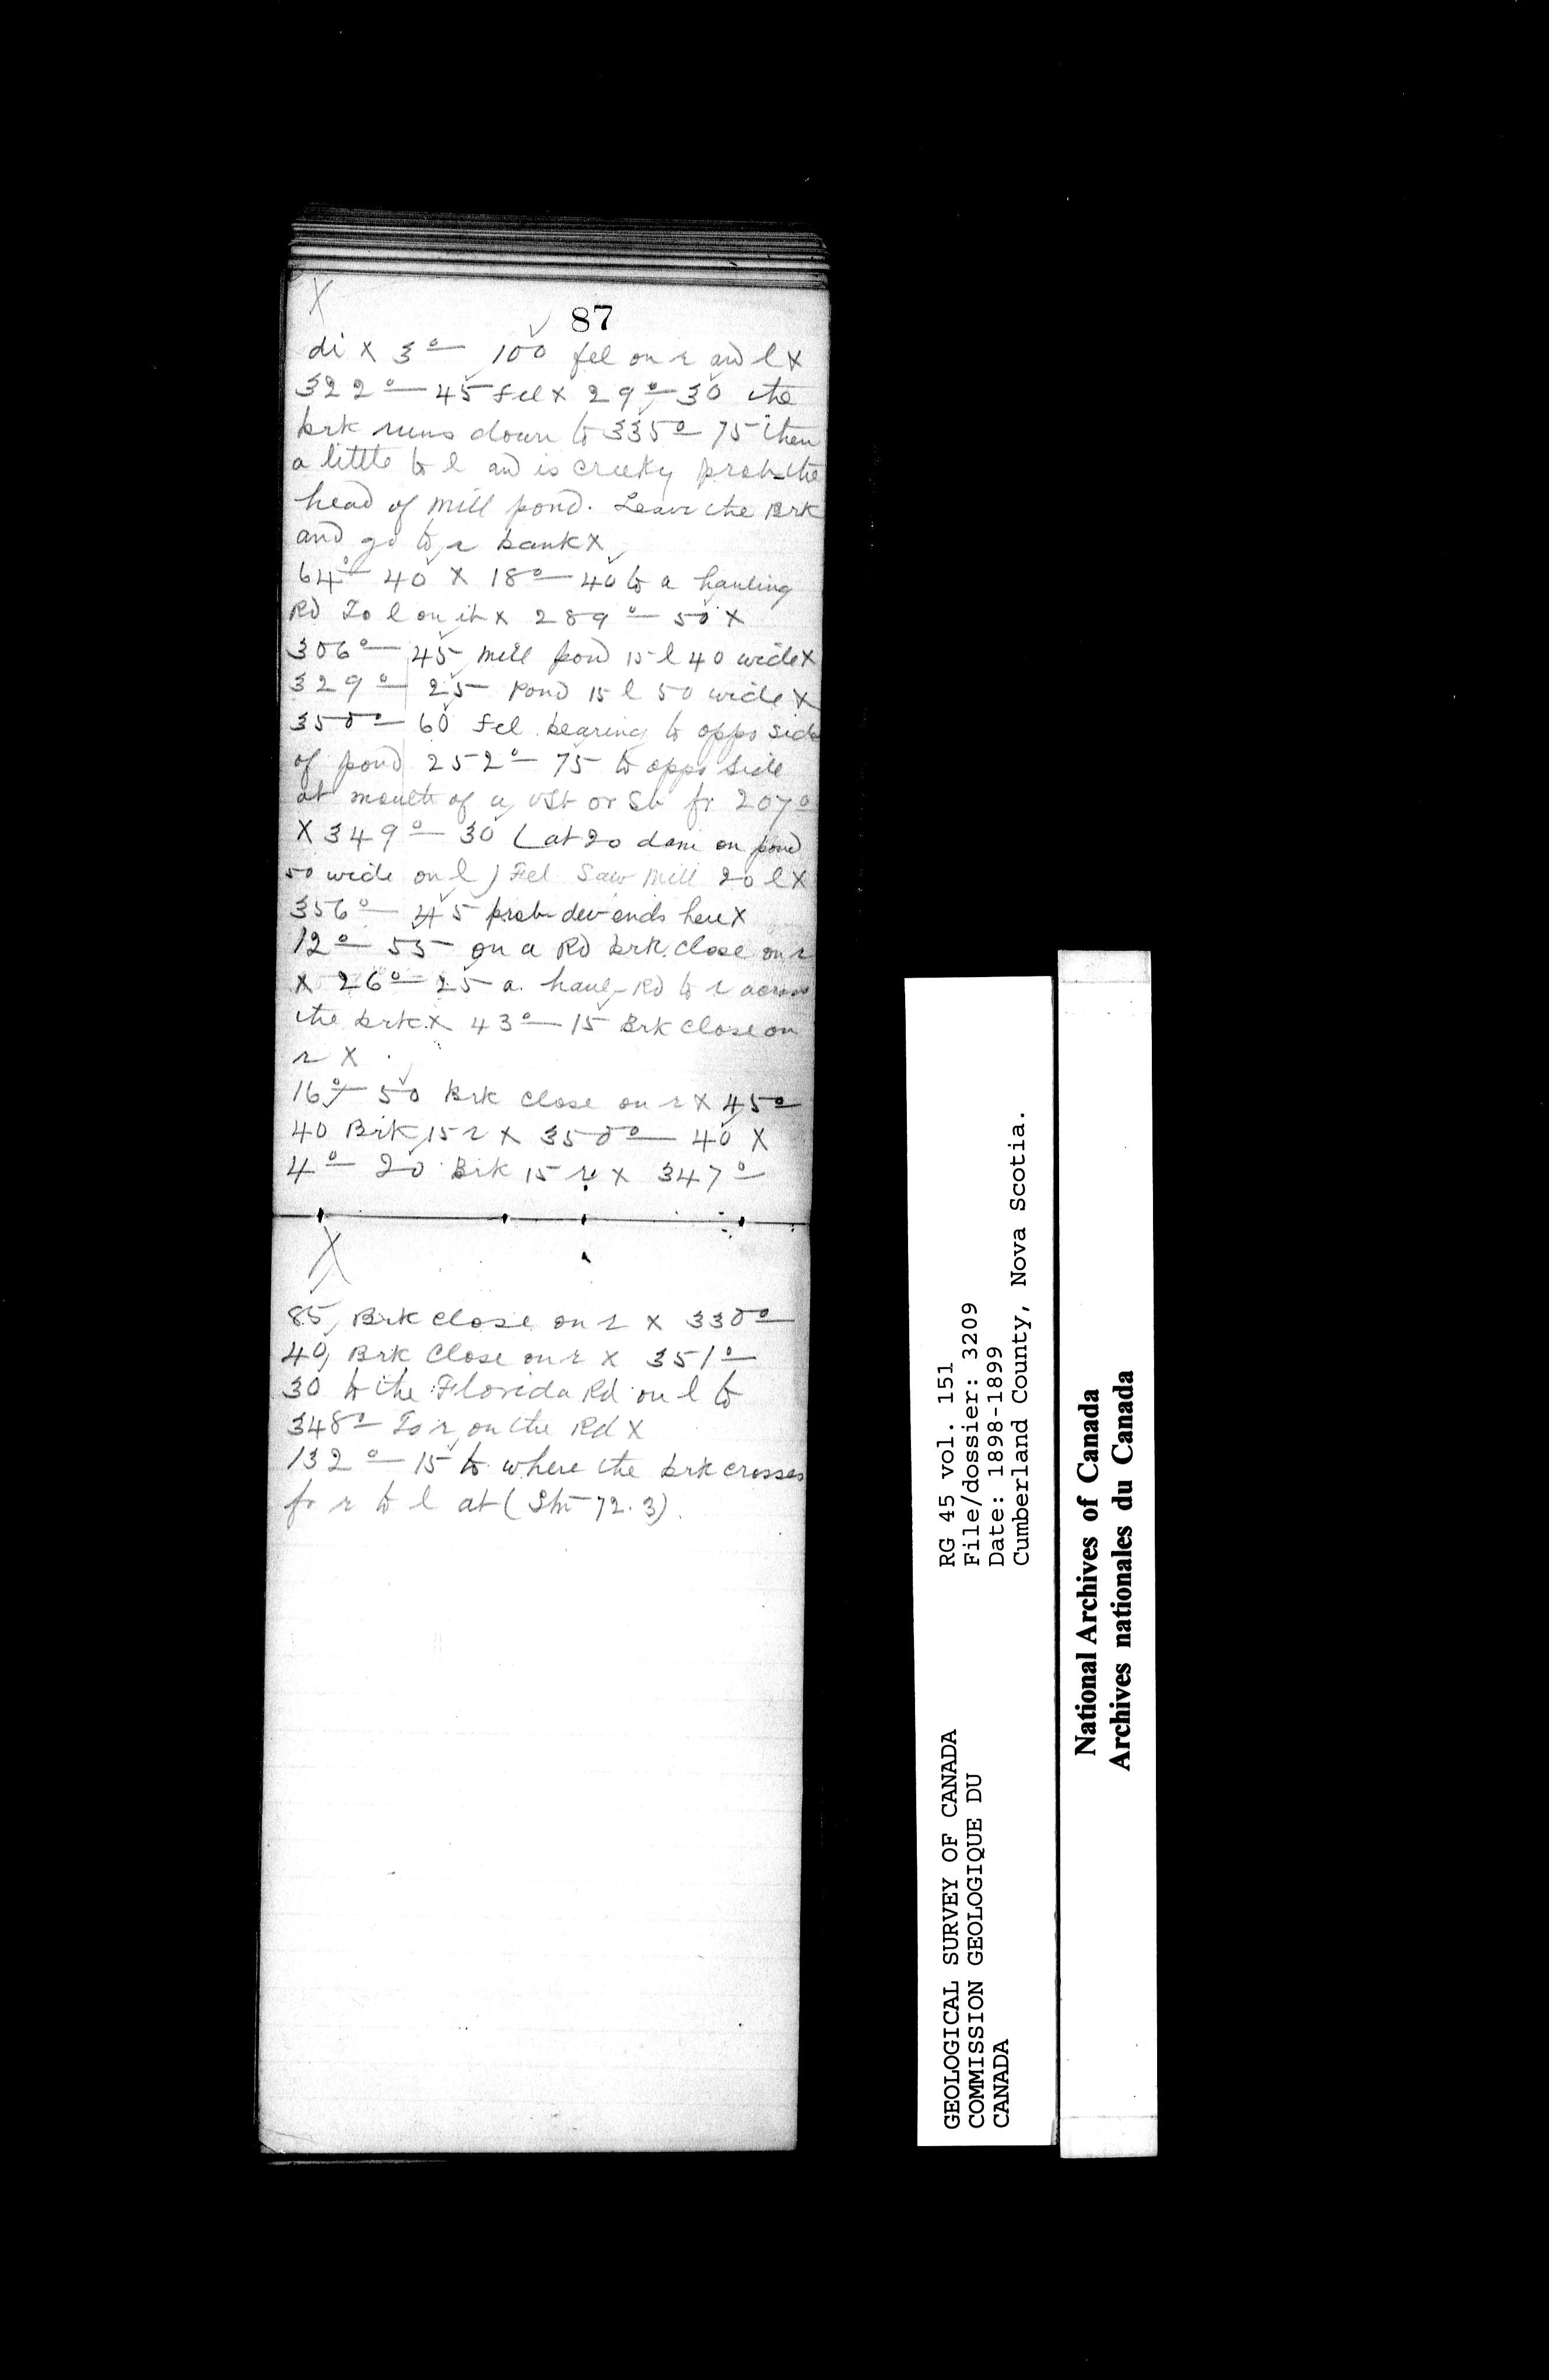 X
87
di X 3° — 100 fel on r and l X
322° — 45 fel X 29° — 30 the
brk runs down to 335° — 75 then
a little to l and is creeky prob the
head of mill pond. Leave the Brk
and go to r bank X
64° — 40 X 18° — 40 to a hauling
Rd To l on it X 289° — 50 X
306° — 45 mill pond 15 l 40 wide X
329° — 25 Pond 15 l 50 wide X
350° — 60 fel bearing to oppo side
of pond 252° — 75 to oppo side
at mouth of a vst or Sb fr 207°
X 349° — 30 (at 20 dam on pond
50 wide on l) Fel Saw mill 20 l X
356° — 45 prob dev ends here X
12° — 55 on a Rd brk close on r
X 26° — 25 a haul-Rd to r across
the brk X 43° — 15 Brk close on
r X
16° — 50 Brk close on r X 45°
40 Brk 15 r X 350° — 40 X
4° — 20 Brk 15 r X 347° —
X
85 Brk close on r X 330° —
40 Brk Close on r X 351° —
30 to the Florida Rd on l to
348° — To r on the Rd X
132° — 15 to where the brk crosses
fr r to l at (Stn 72.3).
GEOLOGICAL SURVEY OF CANADA
COMMISSION GEOLOGIQUE DU
CANADA
RG 45 vol. 151
File/dossier: 3209
Date: 1898-1899
Cumberland County, Nova Scotia.
National Archives of Canada
Archives nationales du Canada